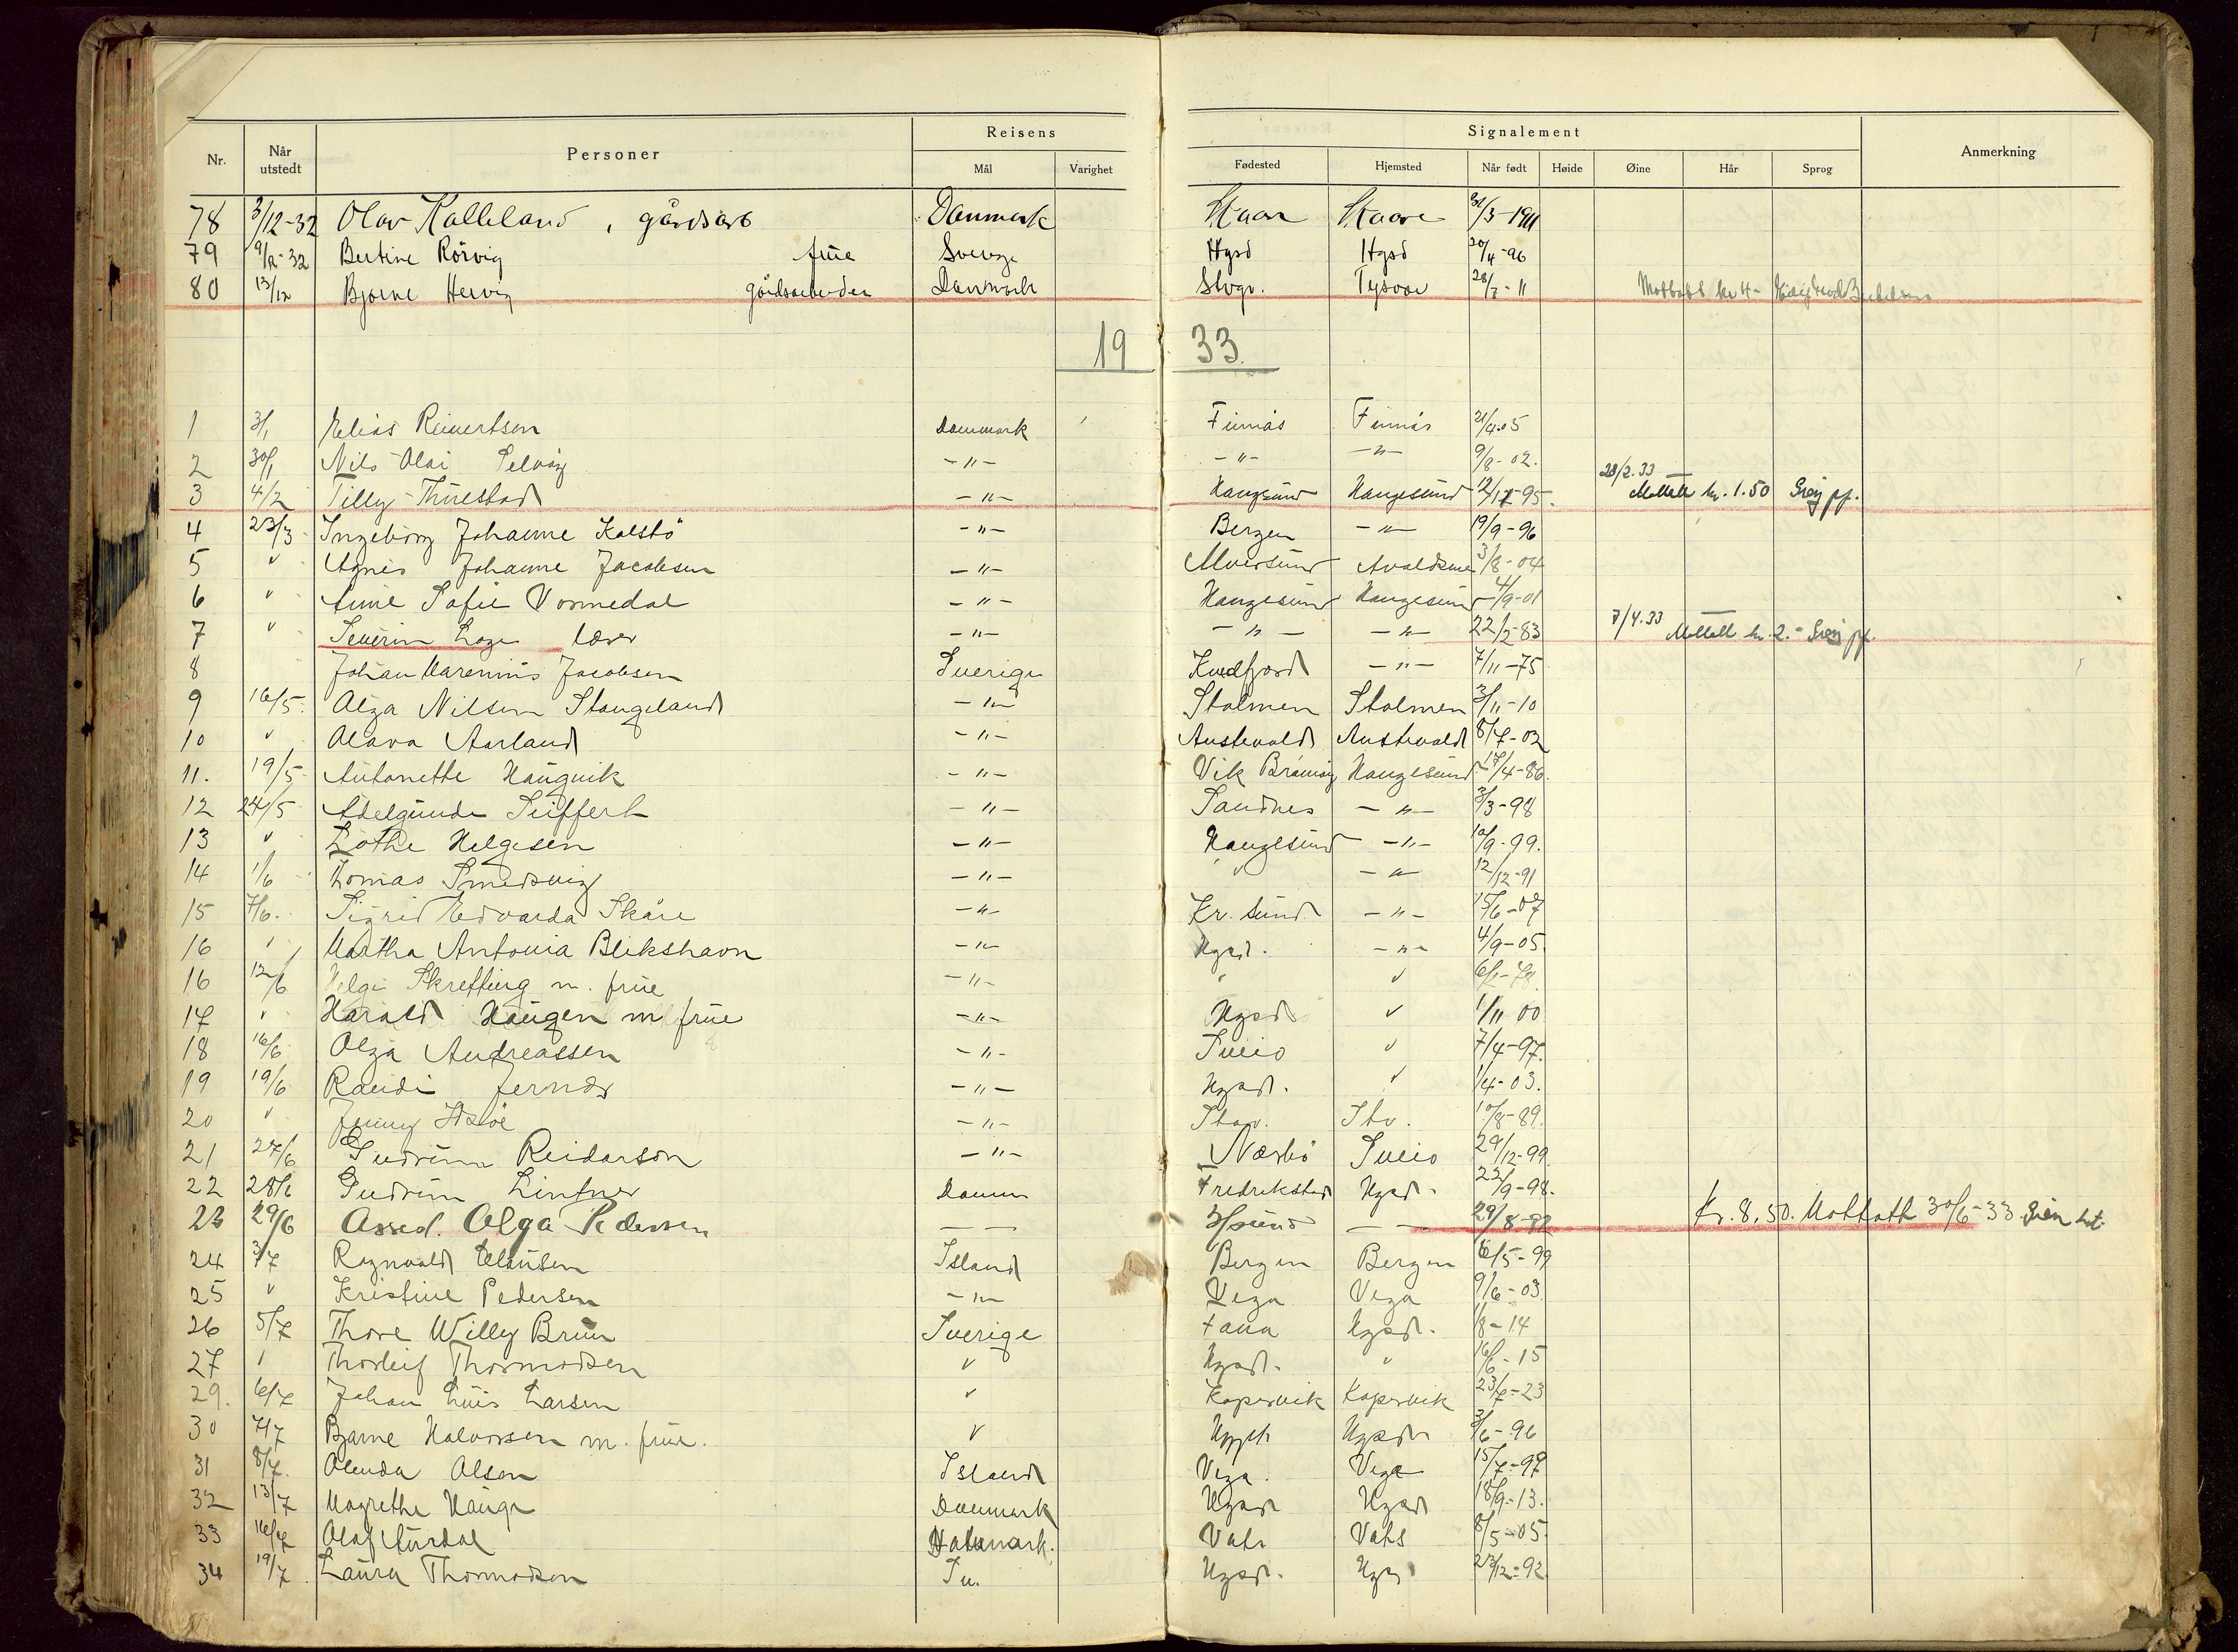 Nr. Når utstedt Personer Reisens Mål Varighet Signalement Fødested Hjemsted Når født Høide Øine Hår Sprog Anmerkning
78 3/12-32 Olav Kalleland, gårdsarb Danmark Skaare Skaare 31/3-1911
79 9/12-32 Bertine Rörvig frue Sverige Hgsd Hgsd 20/4-96
80 13/12 Bjarne Hervig gårdsarbeider Danmark Stvgr. Tysvær 28/7-11 Mottatt kr 4-
19 33.
1 3/1 Elias Reinertsen Danmark Finnås Finnås 21/4.05
2 30/1 Nils Olai Selvåg -"- -"- -"- 9/8-02.
3 4/2 Tilly Thuestad -"- Haugesund Haugesund 12/12-95. 28/2.33 Mottatt kr. 1.50
4 23/3 Ingeborg Johanne Kalstö -"- Bergen -"- 19/9-96
5 " Agnes Johanne Jacobsen -"- Mversund Avaldsnes 3/8-04
6 " Anne Sofie Vormedal -"- Haugesund Haugesund 4/9-01
7 " Severin Lage lærer -"- -"- -"- 22/2-83 7/4.33 Mottatt kr. 2.-
8 Johan Marenius Jacobsen Sverige Kvedfjord -"- 7/11-75
9 16/5. Olga Nilsen Stangeland -"- Stolmen Stolmen 3/11-10
10 " Olava Aarland -"- Austevold Austevold 8/7-02
11. 19/5 Antonette Haugvik -"- Vik Haugesund 17/4-86.
12 24/5 Adelgunde Siiffert -"- Sandnes -"- 3/3-98
13 " Lothe Helgesen -"- Haugesund -"- 10/9-99.
14 1/6 Thomas Smedsvig -"- " -"- 12/12-91
15 7/6. Sigrid Edvarda Skåre -"- Kr. sund -"- 15/6-07
16 " Martha Antonia Blikshavn -"- Hgsd. -"- 4/9-05
16 12/6 Helge Skretting m. frue -"- " "
17 " Harald Haugen m frue -"- Hgsd " 1/11 00
18 16/6 Olga Andreassen -"- Sveio " 7/4-97.
19 19/6 Randi Jernæs -"- Hgsd. " 1/4-03.
20 " Jenny -"- Stav. Stv. 10/8-89.
21 27/6 Gudrun Reidarson -"- Nærbö Sveio 29/12-99.
22 28/6 Gudrun Lintner Danm Fredrikstad Hgsd. 22/9-98.
23 29/6 Assed. Olga Pedersen — — — — 29/8-92 Kr. 8,50. Mottatt 30/6-33
24 3/7 Ragnvald Clausen Island Bergen Bergen 6/5-99
25 " Kristine Pedersen -"- Vega Vega 9/6-03.
26 5/7 Thore Willy Bruun Sverige Fana Hgsd. 1/8-14
27 " Thorleif Thormodsen " Hgsd. " 16/6-15
29. 6/7 Johan Luis Larsen " Kopervik Kopervik 23/7-23
30 7/7 Bjarne Halvorsen m. frue. " Hgsd Hgsd 3/6-96
31 8/7. Alenda Olsen Island Vega. Vega 15/7-97
32 13/7 Magrethe Hauge Danmark Hgsd Hgsd 18/9-13.
33 16/7 Olaf Aurdal Danmark. Vats Vats 8/5-05.
34 19/7 Laura Thormodsen Sv. Hgsd. Hgs 23/12-92.